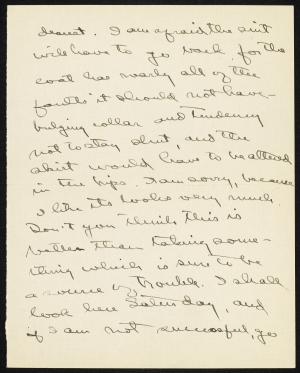 dearest. I am afraid the suit
will have to go back, for the
coat has nearly all of the
faults it should not have –
bulging collar and tendency
not to stay shut, and the
skirt would have to be altered
in the hips. I am sorry, because
I like its looks very much.
Don't you think this is
better than taking some-
thing which is sure to be
a source of trouble. I shall
look here Saturday, and
if I am not successful, go